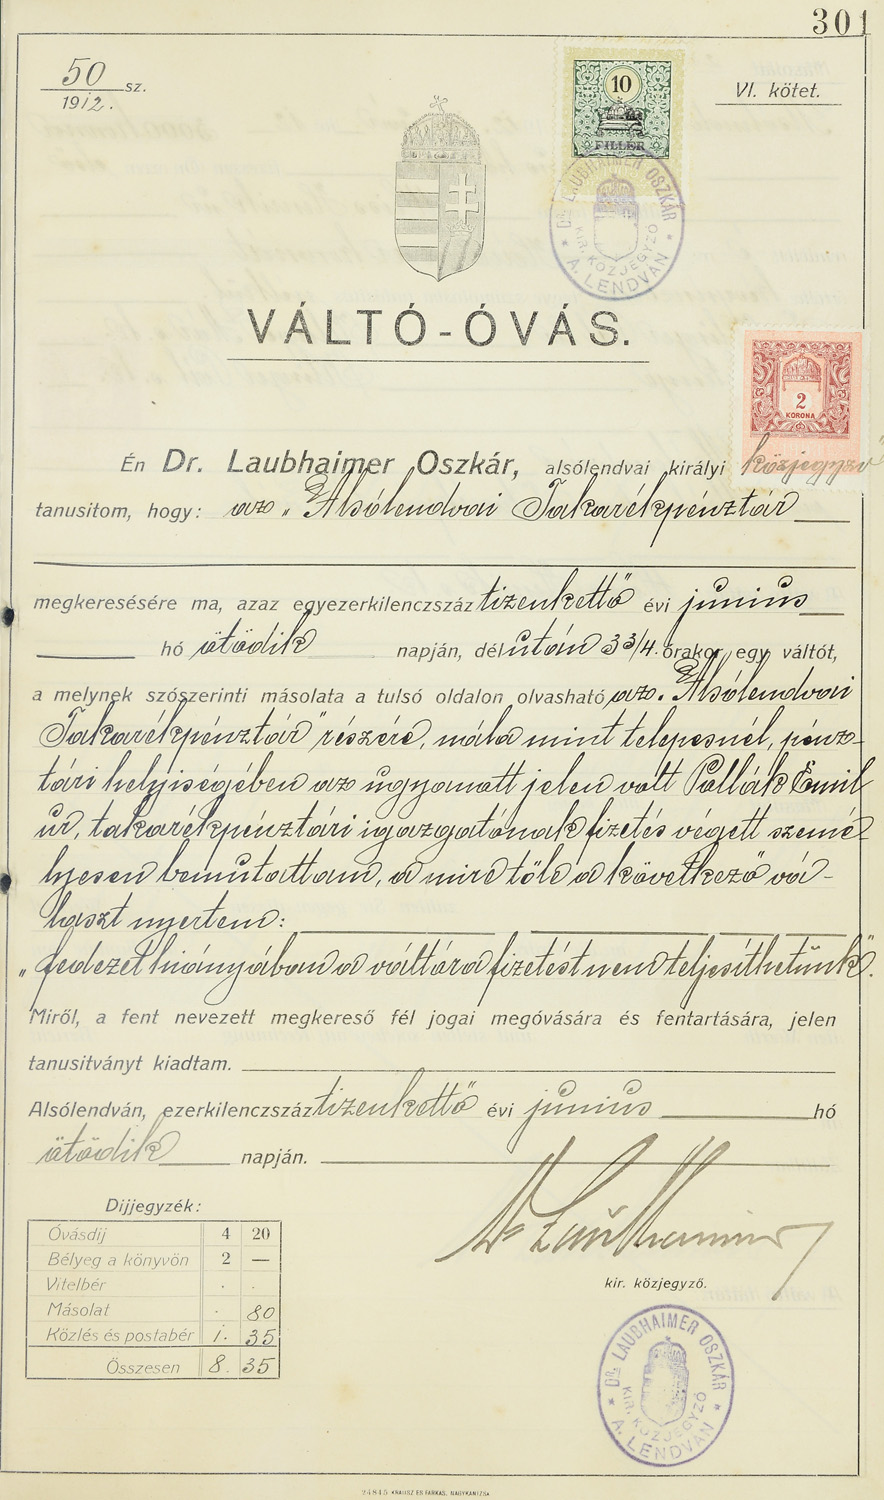 301
50 sz.
1912.
VI. kötet.
10
FILLÉR
DR. LAUBHAIMER OSZKÁR
KIR. KÖZJEGYZŐ
* A. LENDVÁN *
VÁLTÓ-ÓVÁS.
2
KORONA
Én Dr. Laubhaimer Oszkár, alsólendvai királyi közjegyző
tanusitom, hogy: az „Alsólendvai Takarékpénztár
megkeresésére ma, azaz egyezerkilenczszáz tizenkettő évi junius
hó ötödik napján, dél után 3 3/4. órakor egy váltót,
a melynek szószerinti másolata a tulsó oldalon olvasható az „Alsólendvai
Takarékpénztár" részére, nála mint telepesnél, pénz-
tári helyiségében az ugyanott jelen volt Pollák Emil
úr, takarékpénztári igazgatónak fizetés végett szemé-
lyesen bemutattam, a mire tőle a következő vá-
laszt nyertem:
„fedezet hiányában a váltóra fizetést nem teljesíthetünk".
Miről, a fent nevezett megkereső fél jogai megóvására és fentartására, jelen
tanusitványt kiadtam.
Alsólendván, ezerkilenczszáz tizenkettő évi junius hó
ötödik napján.
Dr Laubhaimer
kir. közjegyző.
Díjjegyzék:
Óvásdíj 4 20
Bélyeg a könyvön 2 —
Vitelbér . .
Másolat . 80
Közlés és postabér 1. 35
Összesen 8. 35
DR. LAUBHAIMER OSZKÁR
KIR. KÖZJEGYZŐ
* A. LENDVÁN *
24845 KRAUSZ ÉS FARKAS, NAGYKANIZSA